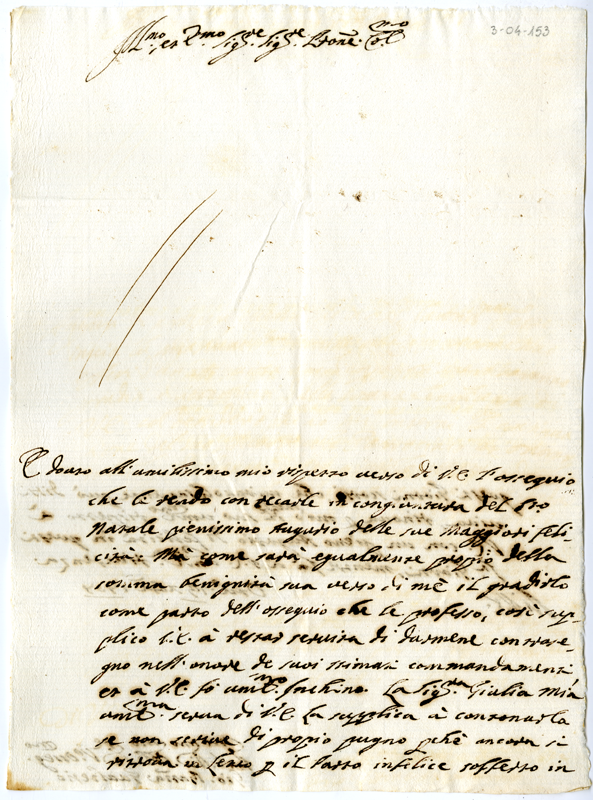 3-04-153
Ill.mo et Ecc.mo Sig.re Sig.re Prone Col.mo
È dovuto all'umilissimo mio rispetto verso di V.E. l'ossequio
che le rendo con recarle in congiuntura del Sto
Natale pienissimo augurio delle sue maggiori feli-
cità: Mà come sarà egualmente proprio della
somma benignità sua verso di me il gradirlo
come parto dell'ossequio che le professo, così sup-
plico V.E. à restar servita di darmene contrase-
gno nell'onore de suoi stimati commandamenti
et à V.E. fo um.mo inchino. La Sig.ra Giulia mia
um.ma serva di V.E. la supplica à condonarla
se non scrive di proprio pugno p̄chè ancora si
ritrova in letto p il parto infelice sofferto in